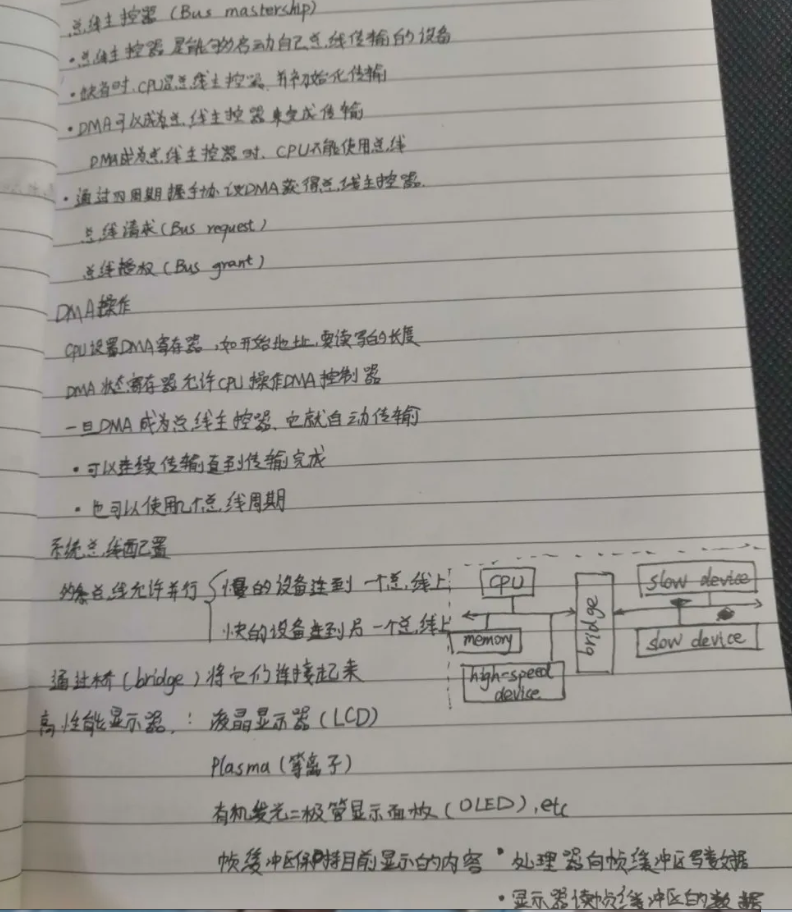 总线主控器（Bus mastership）
·总线主控器是能够启动自己总线传输的设备
·缺省时，CPU是总线主控器，并初始化传输
·DMA可以成为总线主控器来完成传输
DMA成为总线主控器时，CPU不能使用总线
·通过四周期握手协议DMA获得总线主控器.
总线请求（Bus request）
总线授权（Bus grant）
DMA操作
CPU设置DMA寄存器，如开始地址，要读写的长度
DMA状态寄存器允许CPU操作DMA控制器
一旦DMA成为总线主控器，它就自动传输
·可以连续传输直到传输完成
·也可以使用几个总线周期
系统总线配置
多条总线允许并行{慢的设备连到一个总线上
快的设备连到另一个总线上
CPU
memory
high-speed device
bridge
slow device
slow device
通过桥（bridge）将它们连接起来
高性能显示器：液晶显示器（LCD）
Plasma（等离子）
有机发光二极管显示面板（OLED），etc
帧缓冲区保持目前显示的内容 ·处理器向帧缓冲区写数据
·显示器读帧缓冲区的数据